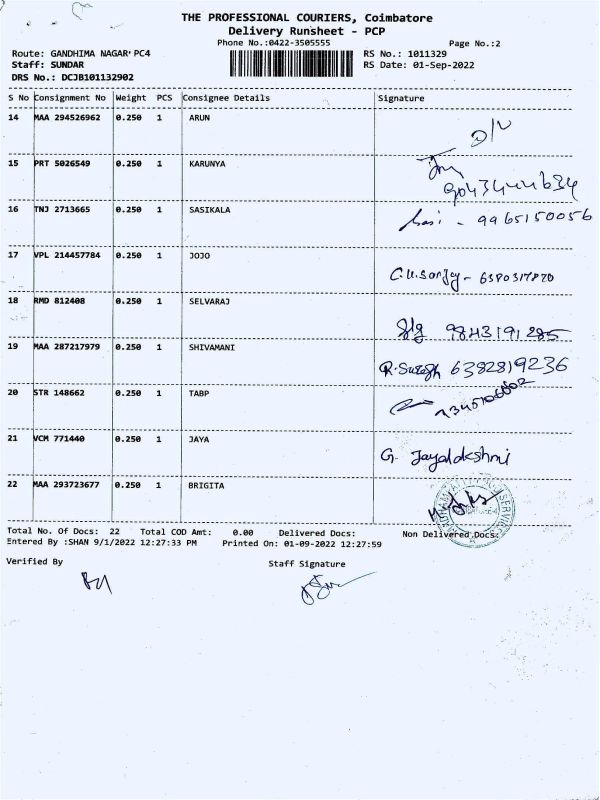 THE PROFESSIONAL COURIERS, Coimbatore
Delivery Runsheet - PCP
Phone No.:0422-3505555
Page No.:2
Route: GANDHIMA NAGAR PC4
RS No.: 1011329
Staff: SUNDAR
RS Date: 01-Sep-2022
DRS No.: DCJB101132902
S No Consignment No Weight PCS Consignee Details Signature
14 MAA 294526962 0.250 1 ARUN
15 PRT 5026549 0.250 1 KARUNYA
9043444634
16 TNJ 2713665 0.250 1 SASIKALA
Sasi - 9965150056
17 VPL 214457784 0.250 1 JOJO
C.U.Sanjay - 6380317870
18 RMD 812408 0.250 1 SELVARAJ
9843191285
19 MAA 287217979 0.250 1 SHIVAMANI
R.Suresh 6382819236
20 STR 148662 0.250 1 TABP
21 VCM 771440 0.250 1 JAYA
G. Jayalakshmi
22 MAA 293723677 0.250 1 BRIGITA
Total No. Of Docs: 22 Total COD Amt: 0.00 Delivered Docs: Non Delivered Docs:
Entered By :SHAN 9/1/2022 12:27:33 PM Printed On: 01-09-2022 12:27:59
Verified By Staff Signature